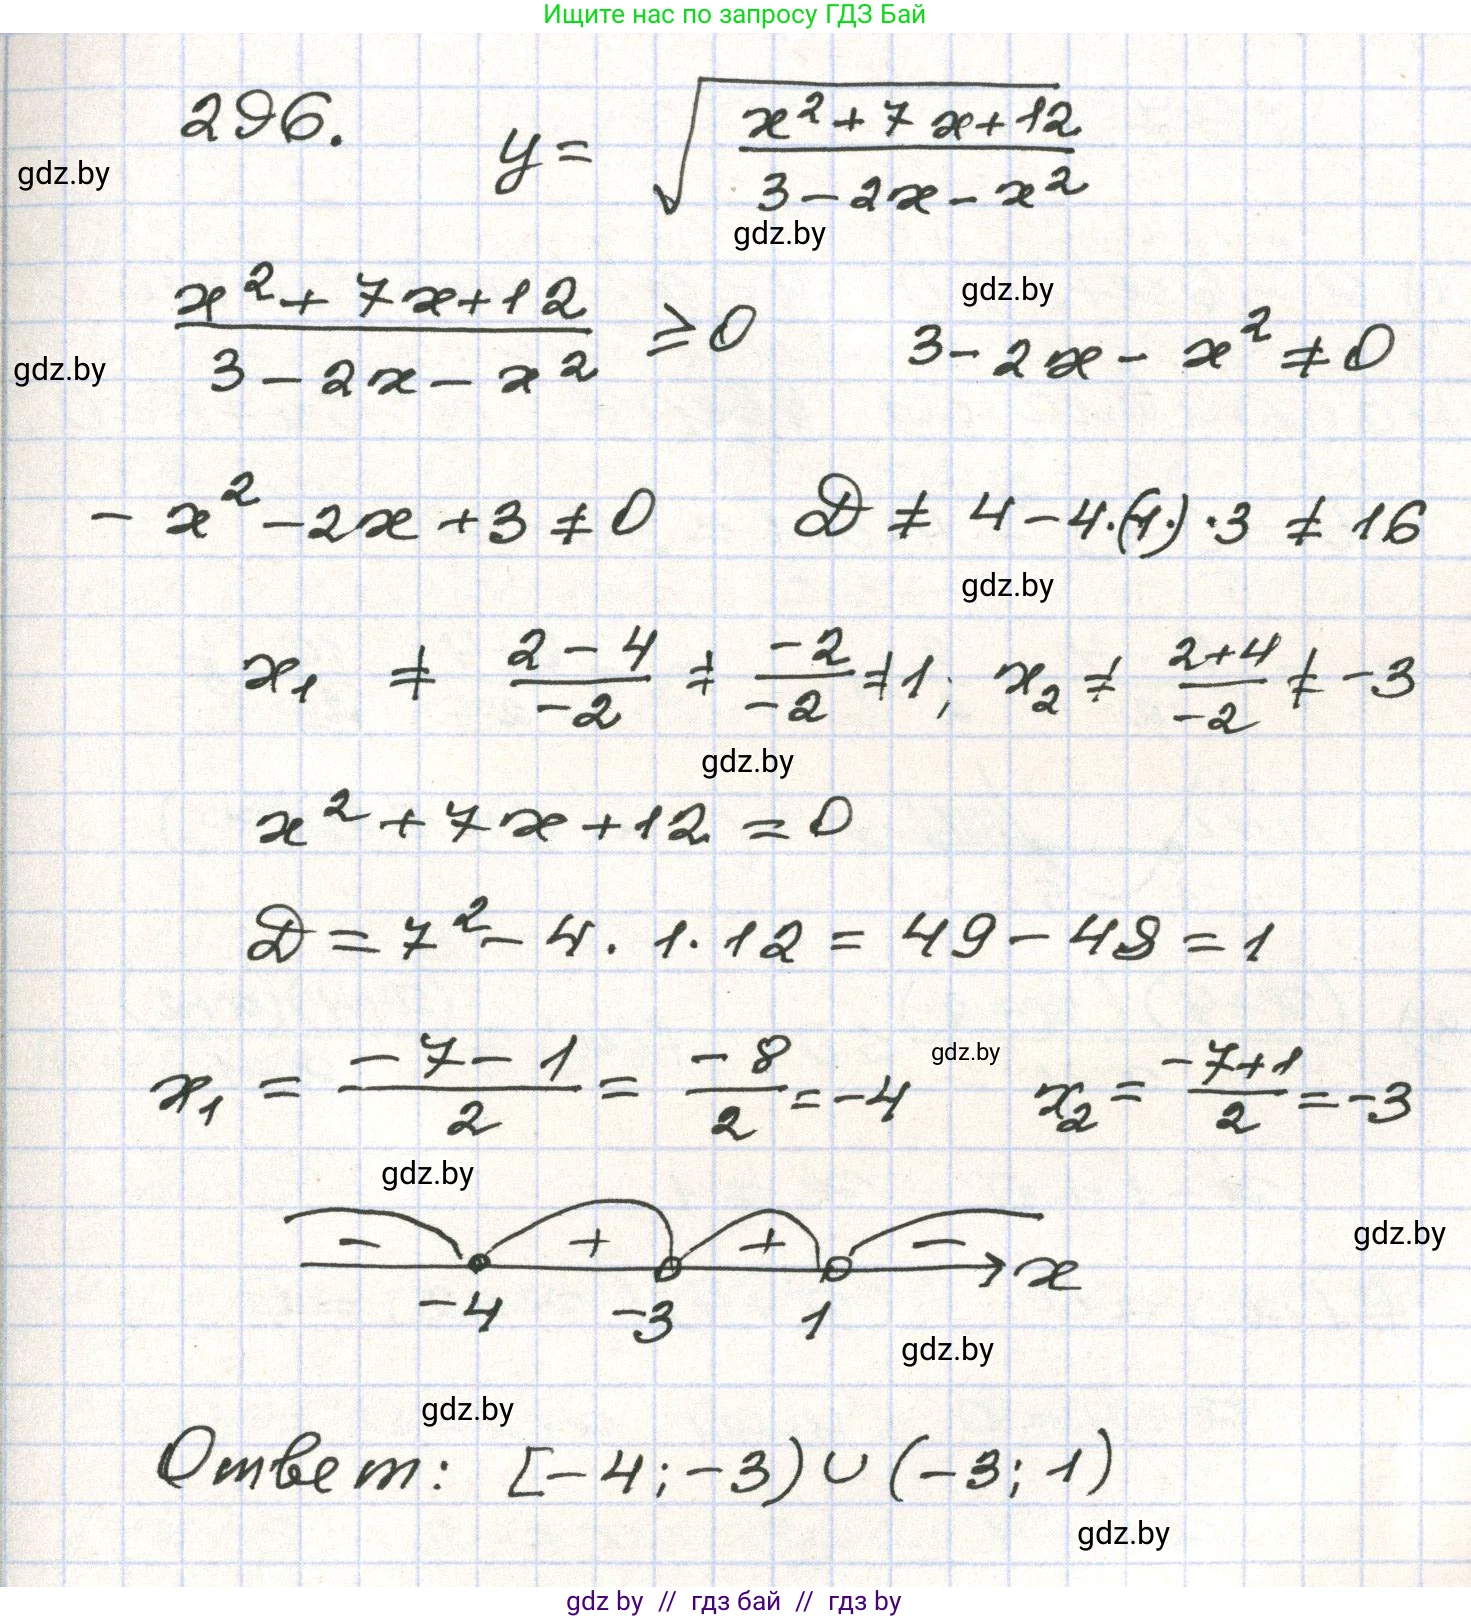 Ищите нас по запросу ГДЗ Бай
296. y = √((x² + 7x + 12)/(3 - 2x - x²))
gdz.by
gdz.by
(x² + 7x + 12)/(3 - 2x - x²) ≥ 0 3 - 2x - x² ≠ 0
gdz.by
gdz.by
- x² - 2x + 3 ≠ 0 D ≠ 4 - 4·(-1)·3 ≠ 16
gdz.by
x₁ ≠ (2 - 4)/(-2) ≠ (-2)/(-2) ≠ 1; x₂ ≠ (2+4)/(-2) ≠ -3
gdz.by
x² + 7x + 12 = 0
D = 7² - 4 · 1 · 12 = 49 - 48 = 1
x₁ = (-7 - 1)/2 = (-8)/2 = -4 gdz.by x₂ = (-7+1)/2 = -3
gdz.by
- + + - x
gdz.by
-4 -3 1
gdz.by
gdz.by
Ответ: [-4; -3) ∪ (-3; 1)
gdz.by
gdz by // гдз бай // гдз by